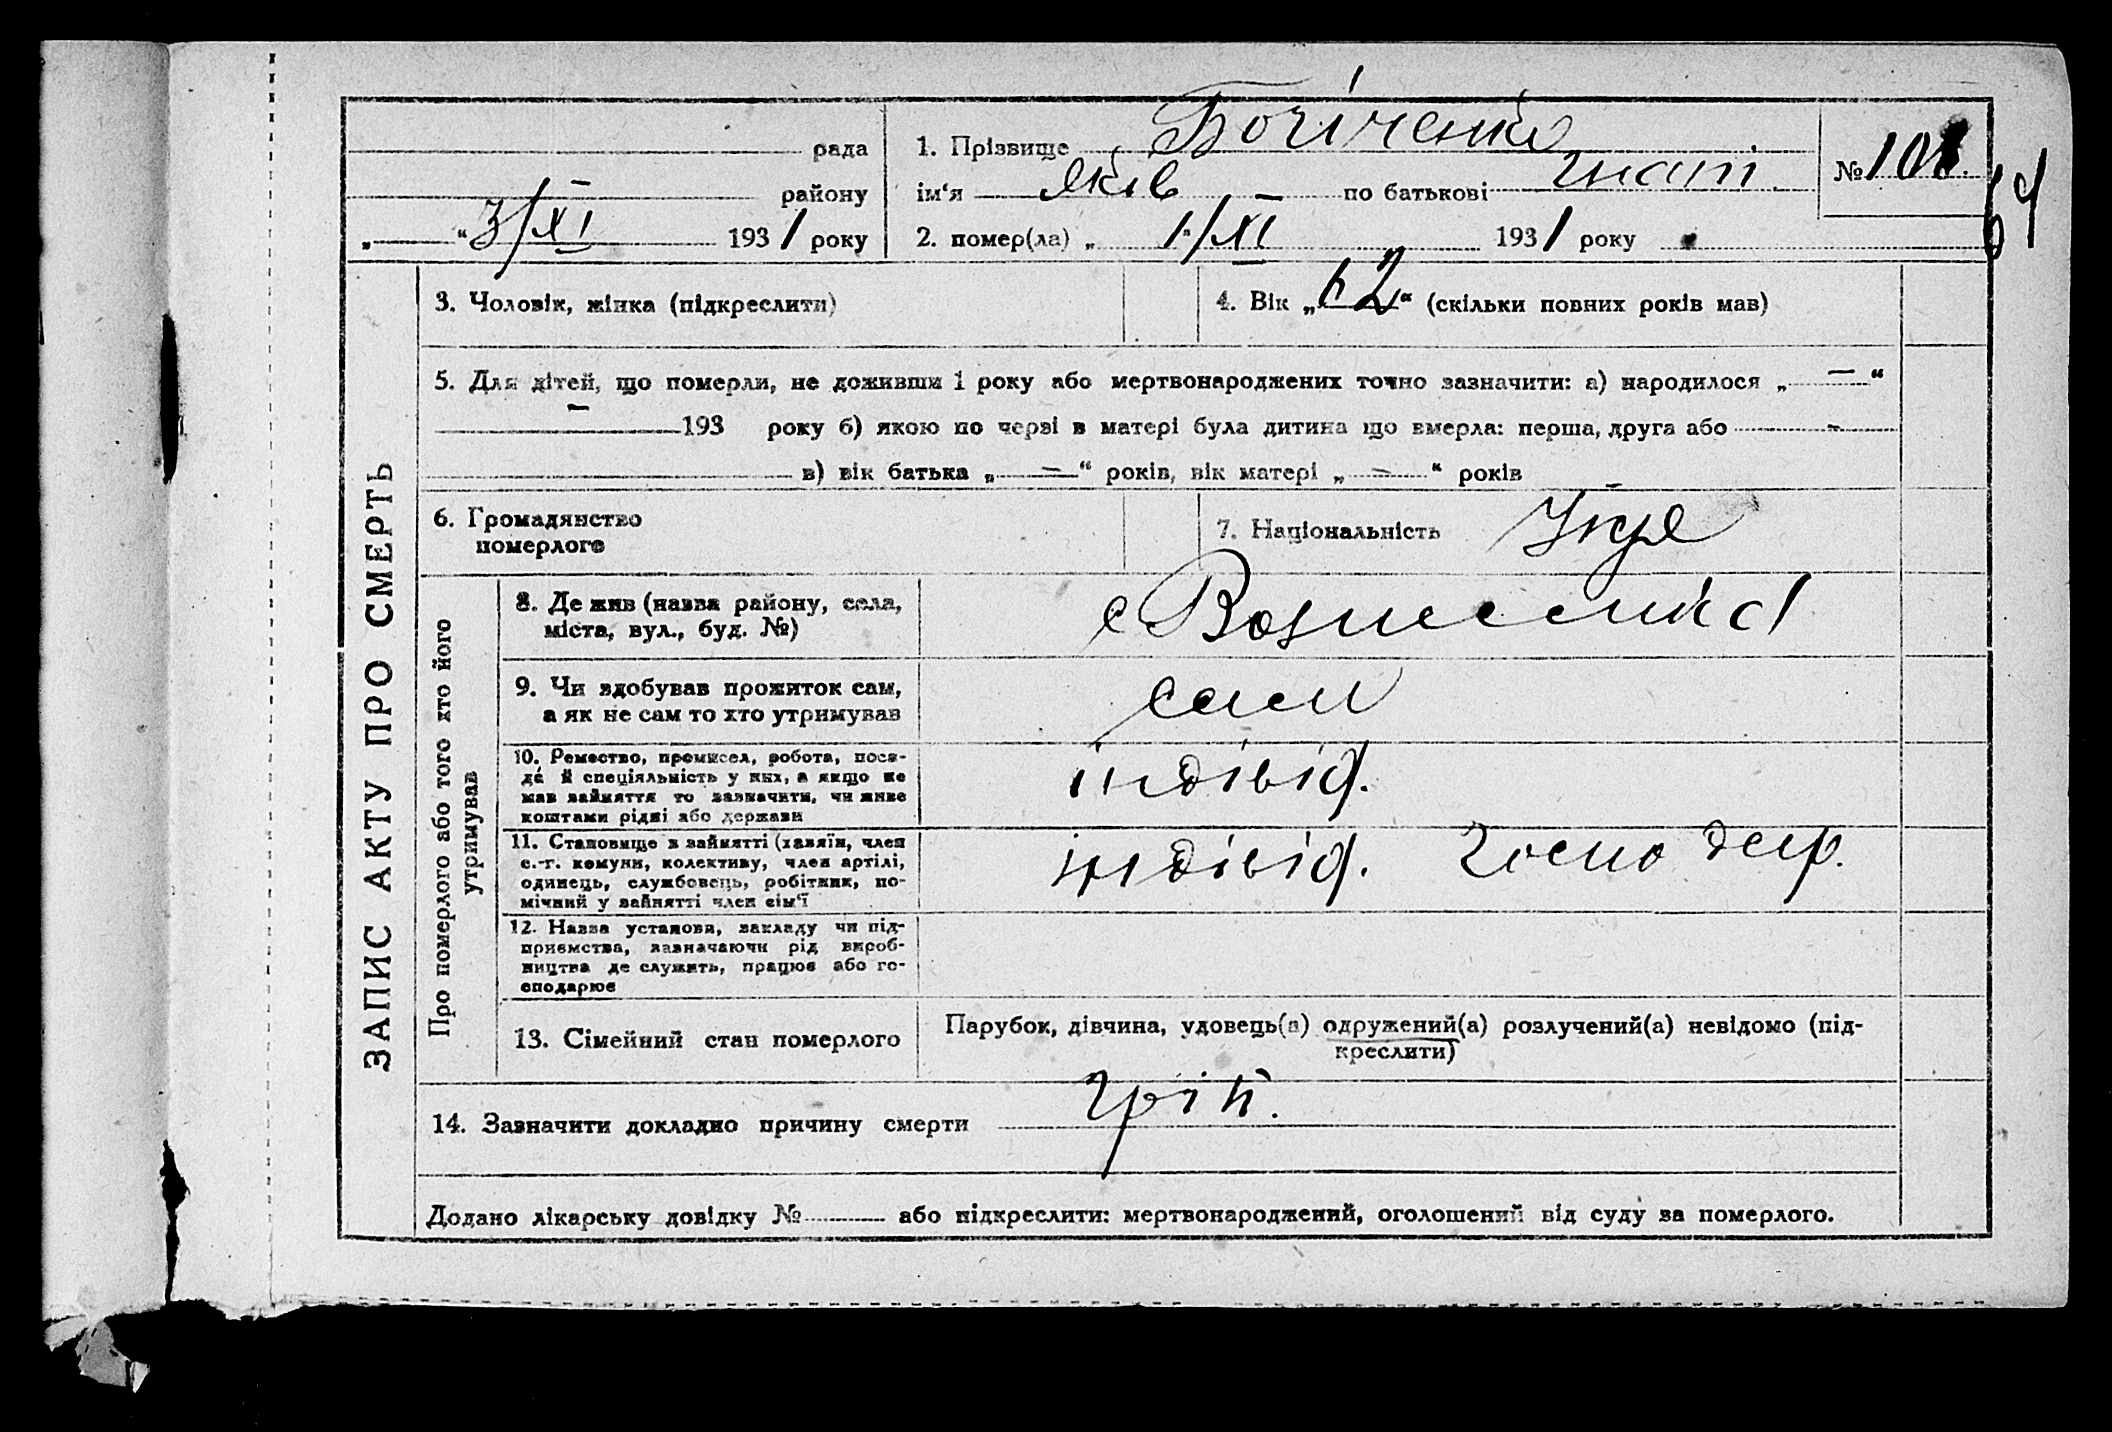 рада
1. Прізвище Богіченко
№ 108.
64
району
ім'я Яків по батькові Гнат.
„ “ 3/XI 1931 року
2. помер(ла) „ 1/XI 1931 року
ЗАПИС АКТУ ПРО СМЕРТЬ
3. Чоловік, жінка (підкреслити)
4. Вік „62“ (скільки повних років мав)
5. Для дітей, що померли, не доживши 1 року або мертвонароджених точно зазначити: а) народилося „ — “
— 193 року б) якою по черзі в матері була дитина що вмерла: перша, друга або -
в) вік батька „ — “ років, вік матері „ — “ років
6. Громадянство
померлого
7. Національність Укр
Про померлого або того хто його
утримував
8. Де жив (назва району, села,
міста, вул., буд. №)
с Вознесенка
9. Чи здобував прожиток сам,
а як не сам то хто утримував
сам
10. Ремество, промисел, робота, поса-
да й спеціяльність у них, а якщо не
мав зайняття то зазначити, чи живе
коштами рідні або держави
індівід.
11. Становище в зайнятті (хазяїн, член
с.-г. комуни, колективу, член артілі,
одинець, службовець, робітник, по-
мічний у зайнятті член сім'ї
індівід. господар.
12. Назва установи, закладу чи під-
приємства, зазначаючи рід вироб-
ництва де служить, працює або го-
сподарює
13. Сімейний стан померлого
Парубок, дівчина, удовець(а) одружений(а) розлучений(а) невідомо (під-
креслити)
14. Зазначити докладно причину смерти гріп.
Додано лікарську довідку № або підкреслити: мертвонароджений, оголошений від суду за померлого.